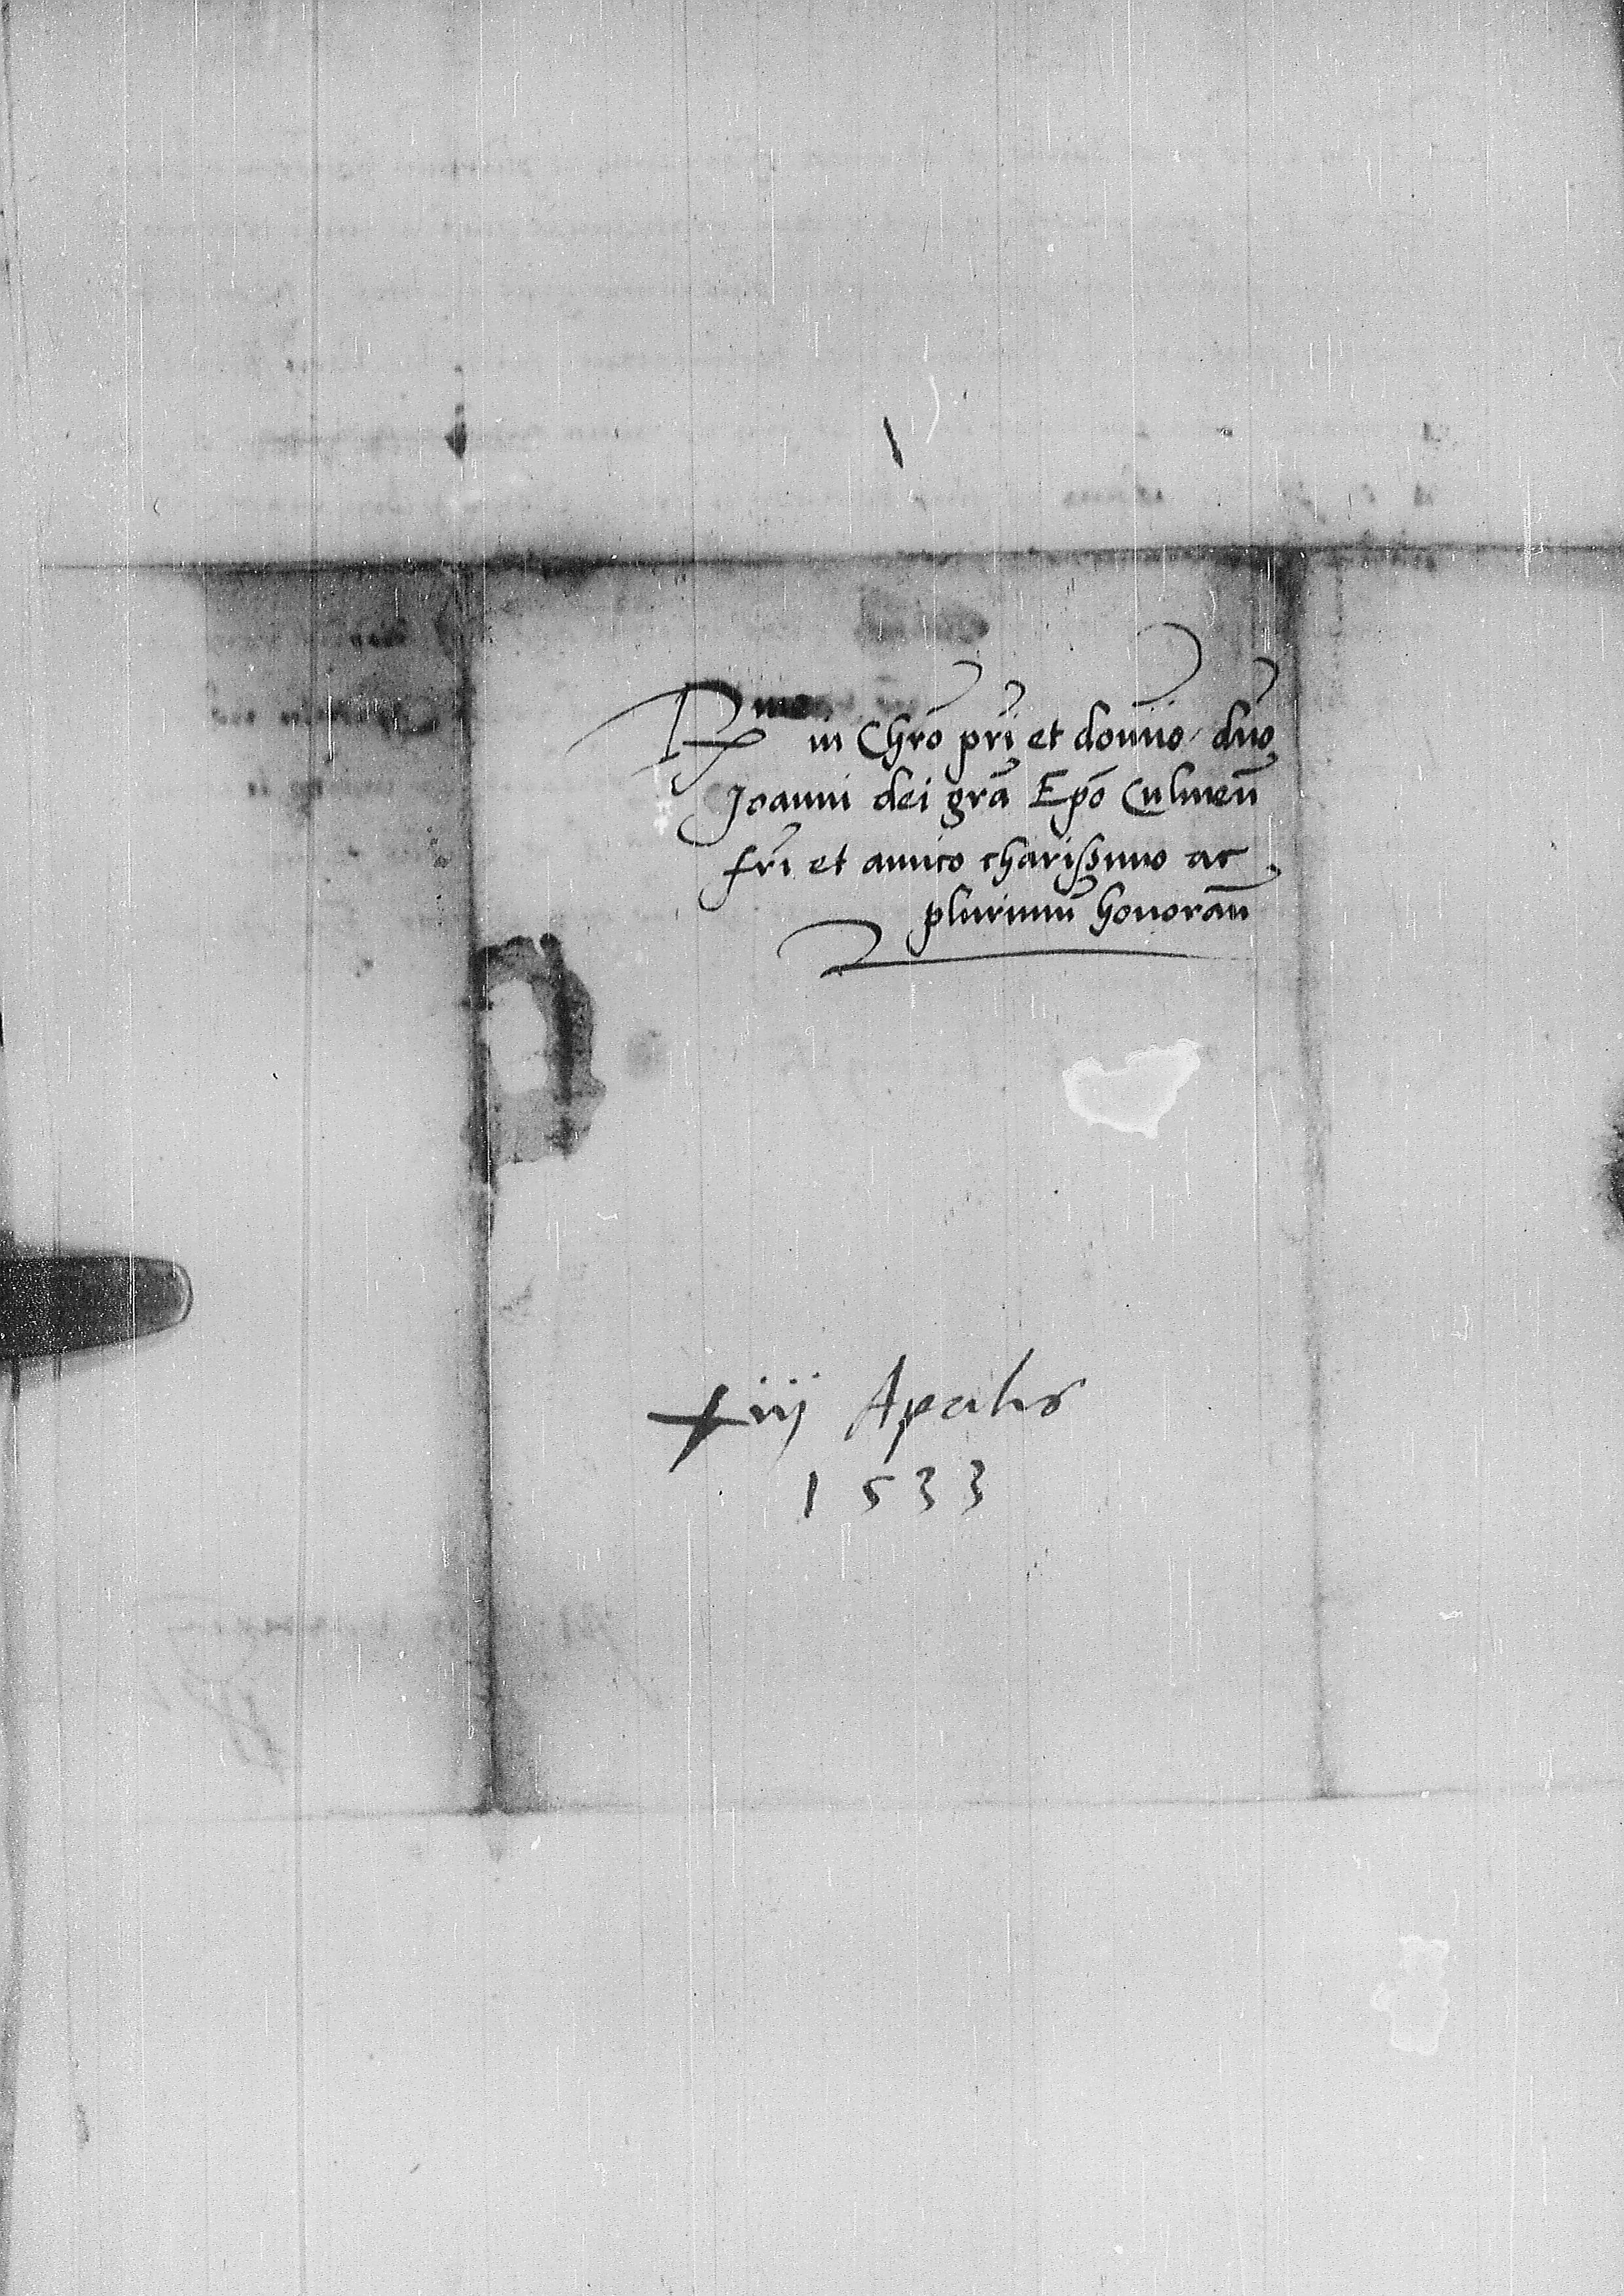 R^mo in Chr̃o pr̃i et domĩo dño
Joanni dei gr̃a Ep̃o Culmeñ
fr̃i et amico charißimo ac
plurimũ honorañ
xiij Aprilis
1533